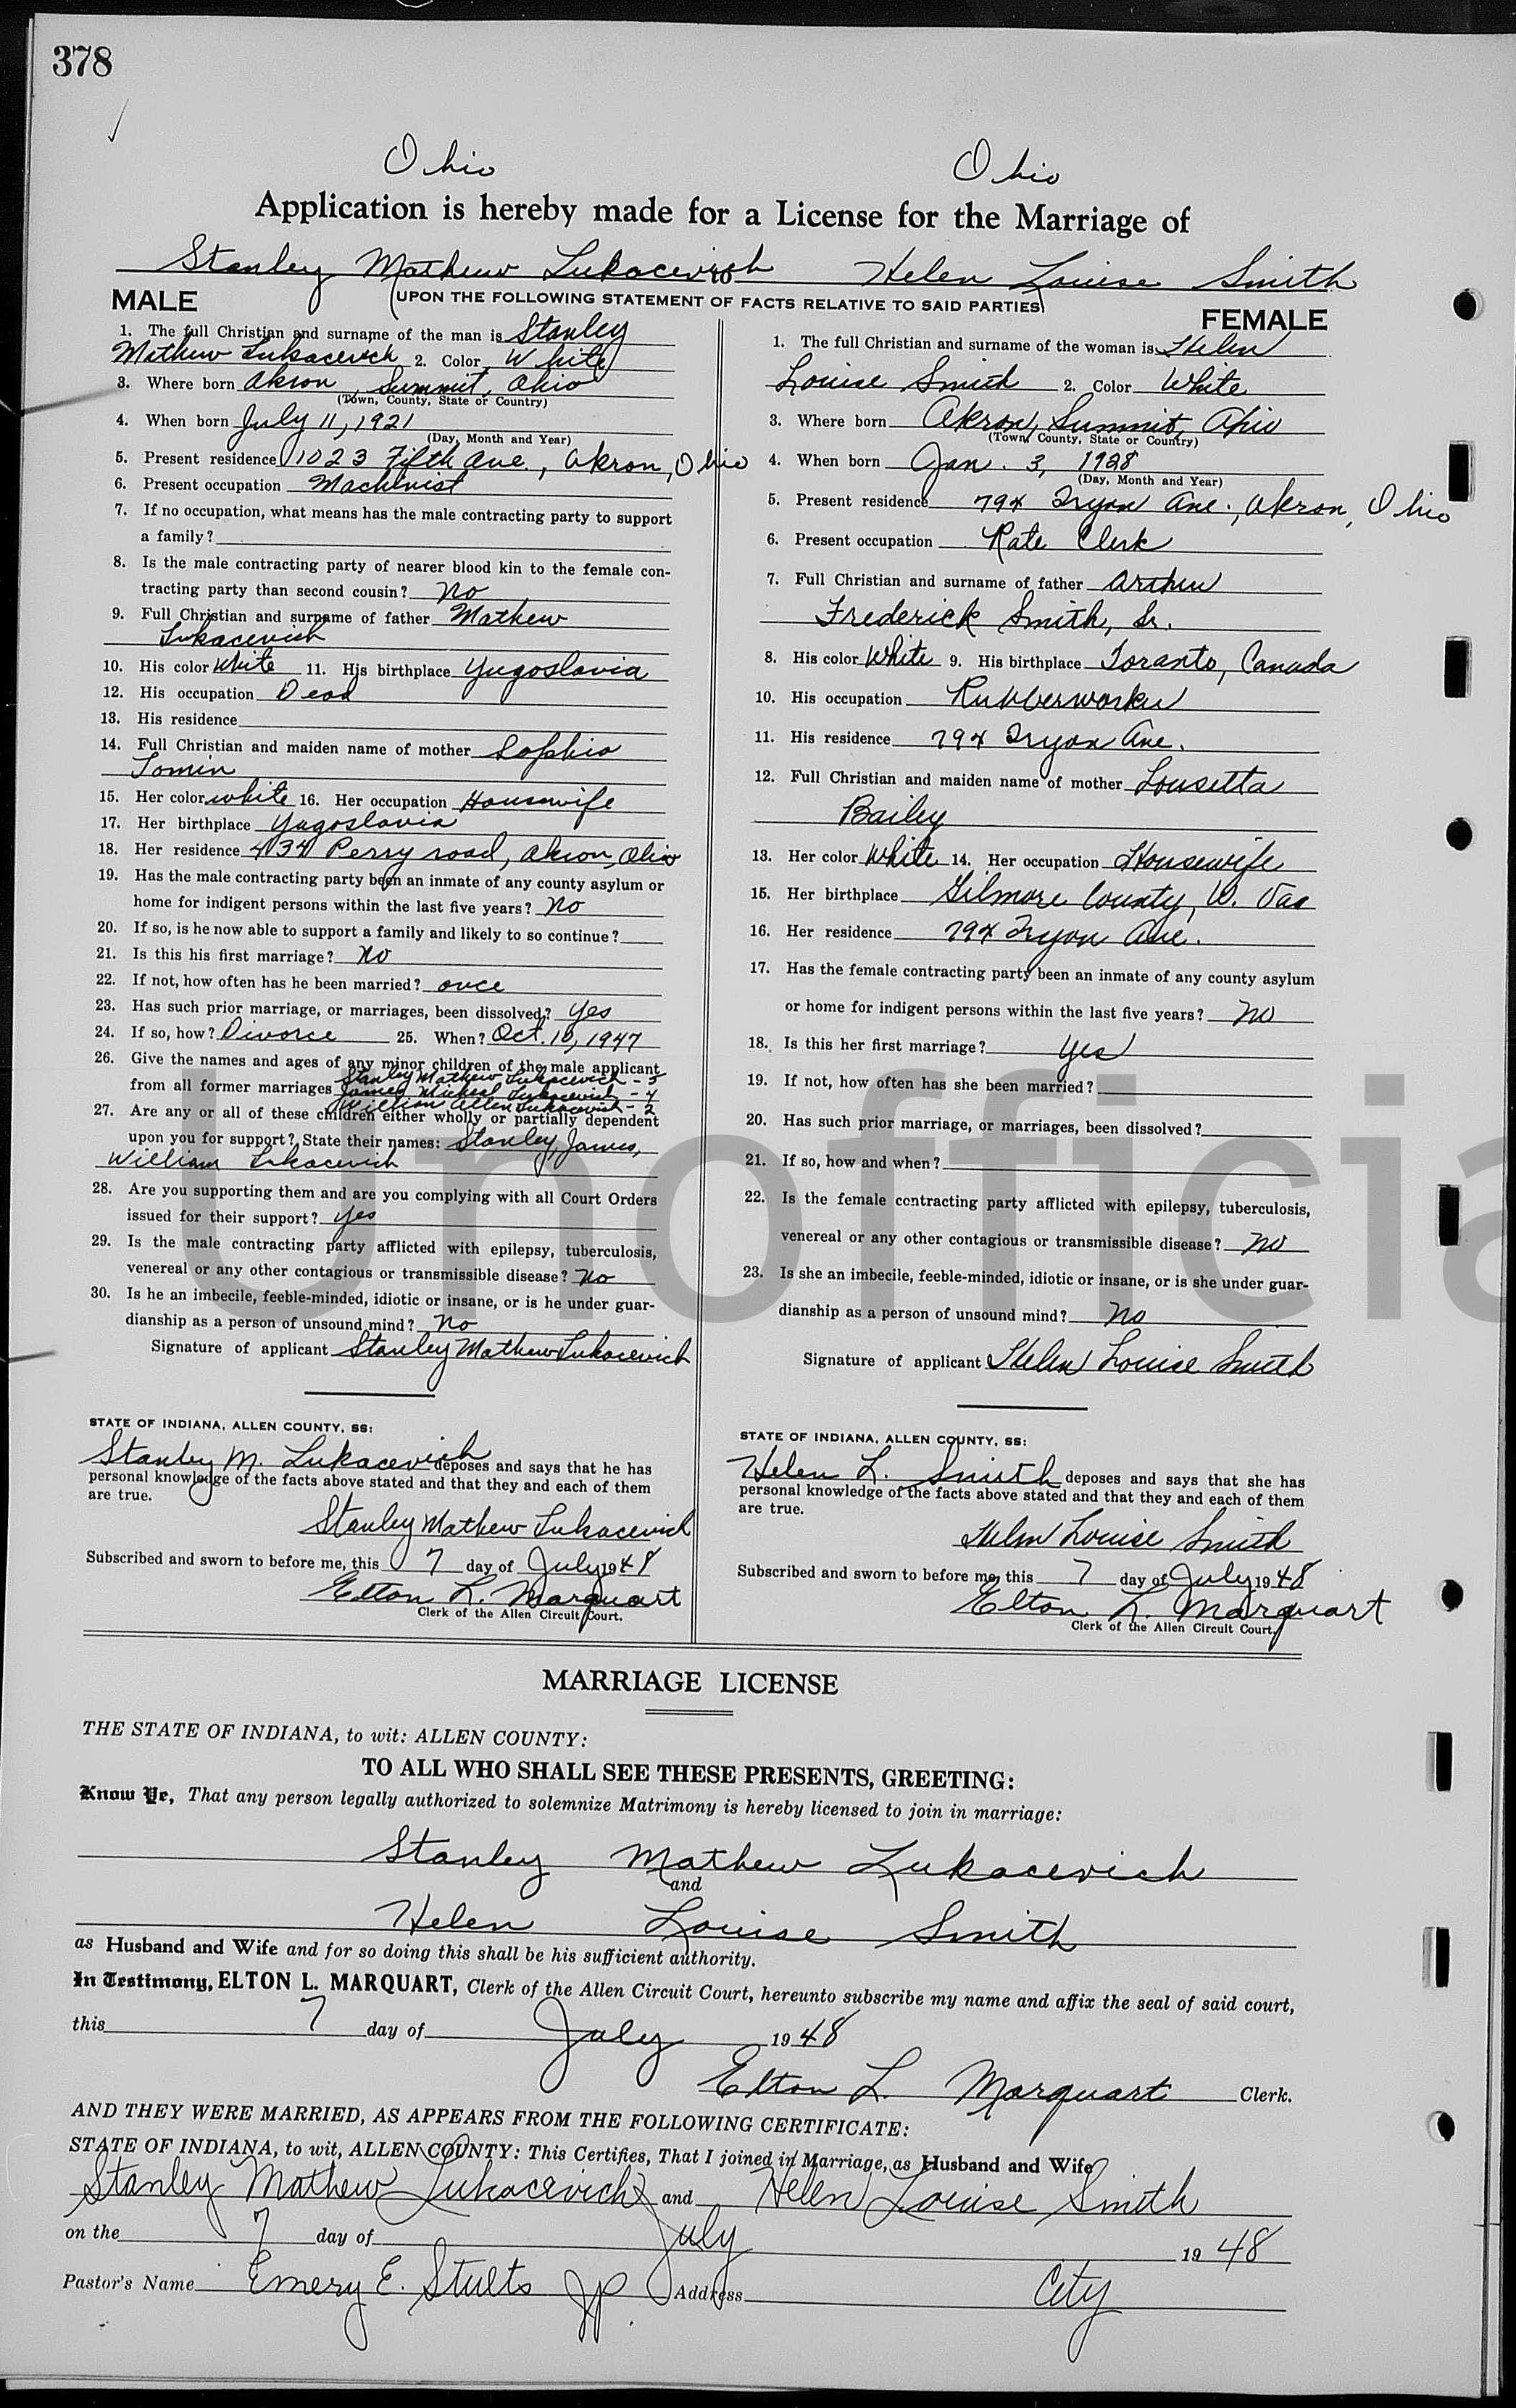 378
Ohio Ohio
Application is hereby made for a License for the Marriage of
Stanley Mathew Lukacevich to Helen Louise Smith
(UPON THE FOLLOWING STATEMENT OF FACTS RELATIVE TO SAID PARTIES)
MALE
1. The full Christian and surname of the man is Stanley
Mathew Lukacevich 2. Color White
3. Where born Akron, Summit, Ohio
(Town, County, State or Country)
4. When born July 11, 1921
(Day, Month and Year)
5. Present residence 1023 Fifth Ave., Akron, Ohio
6. Present occupation Machinist
7. If no occupation, what means has the male contracting party to support
a family?
8. Is the male contracting party of nearer blood kin to the female con-
tracting party than second cousin? No
9. Full Christian and surname of father Mathew
Lukacevich
10. His color White 11. His birthplace Yugoslavia
12. His occupation Dead
13. His residence
14. Full Christian and maiden name of mother Sophia
Tomin
15. Her color white 16. Her occupation Housewife
17. Her birthplace Yugoslavia
18. Her residence 434 Perry road, Akron, Ohio
19. Has the male contracting party been an inmate of any county asylum or
home for indigent persons within the last five years? No
20. If so, is he now able to support a family and likely to so continue?
21. Is this his first marriage? No
22. If not, how often has he been married? once
23. Has such prior marriage, or marriages, been dissolved? Yes
24. If so, how? Divorce 25. When? Oct. 10, 1947
26. Give the names and ages of any minor children of the male applicant
Stanley Mathew Lukacevich - 5
from all former marriages James Micheal Lukacevich - 4
William Allen Lukacevich - 2
27. Are any or all of these children either wholly or partially dependent
upon you for support? State their names: Stanley, James,
William Lukacevich
28. Are you supporting them and are you complying with all Court Orders
issued for their support? Yes
29. Is the male contracting party afflicted with epilepsy, tuberculosis,
venereal or any other contagious or transmissible disease? No
30. Is he an imbecile, feeble-minded, idiotic or insane, or is he under guar-
dianship as a person of unsound mind? No
Signature of applicant Stanley Mathew Lukacevich
STATE OF INDIANA, ALLEN COUNTY, SS:
Stanley M. Lukacevich deposes and says that he has
personal knowledge of the facts above stated and that they and each of them
are true.
Stanley Mathew Lukacevich
Subscribed and sworn to before me, this 7 day of July 1948
Elton L. Marquart
Clerk of the Allen Circuit Court.
FEMALE
1. The full Christian and surname of the woman is Helen
Louise Smith 2. Color White
3. Where born Akron, Summit, Ohio
(Town, County, State or Country)
4. When born Jan. 3, 1928
(Day, Month and Year)
5. Present residence 794 Tryon Ave., Akron, Ohio
6. Present occupation Rate Clerk
7. Full Christian and surname of father Arthur
Frederick Smith, Sr.
8. His color White 9. His birthplace Toranto, Canada
10. His occupation Rubberworker
11. His residence 794 Tryon Ave.
12. Full Christian and maiden name of mother Lousetta
Bailey
13. Her color White 14. Her occupation Housewife
15. Her birthplace Gilmore County, W. Vaa
16. Her residence 794 Tryon Ave.
17. Has the female contracting party been an inmate of any county asylum
or home for indigent persons within the last five years? No
18. Is this her first marriage? Yes
19. If not, how often has she been married?
20. Has such prior marriage, or marriages, been dissolved?
21. If so, how and when?
22. Is the female contracting party afflicted with epilepsy, tuberculosis,
venereal or any other contagious or transmissible disease? No
23. Is she an imbecile, feeble-minded, idiotic or insane, or is she under guar-
dianship as a person of unsound mind? No
Signature of applicant Helen Louise Smith
STATE OF INDIANA, ALLEN COUNTY, SS:
Helen L. Smith deposes and says that she has
personal knowledge of the facts above stated and that they and each of them
are true.
Helen Louise Smith
Subscribed and sworn to before me, this 7 day of July 1948
Elton L. Marquart
Clerk of the Allen Circuit Court.
Unofficia
MARRIAGE LICENSE
THE STATE OF INDIANA, to wit: ALLEN COUNTY:
TO ALL WHO SHALL SEE THESE PRESENTS, GREETING:
Know Ye, That any person legally authorized to solemnize Matrimony is hereby licensed to join in marriage:
Stanley Mathew Lukacevich
and
Helen Louise Smith
as Husband and Wife and for so doing this shall be his sufficient authority.
In Testimony, ELTON L. MARQUART, Clerk of the Allen Circuit Court, hereunto subscribe my name and affix the seal of said court,
this 7 day of July 1948
Elton L. Marquart Clerk.
AND THEY WERE MARRIED, AS APPEARS FROM THE FOLLOWING CERTIFICATE:
STATE OF INDIANA, to wit, ALLEN COUNTY: This Certifies, That I joined in Marriage, as Husband and Wife
Stanley Mathew Lukacevich and Helen Louise Smith
on the 7 day of July 1948
Pastor's Name Emery E. Stults JP. Address City